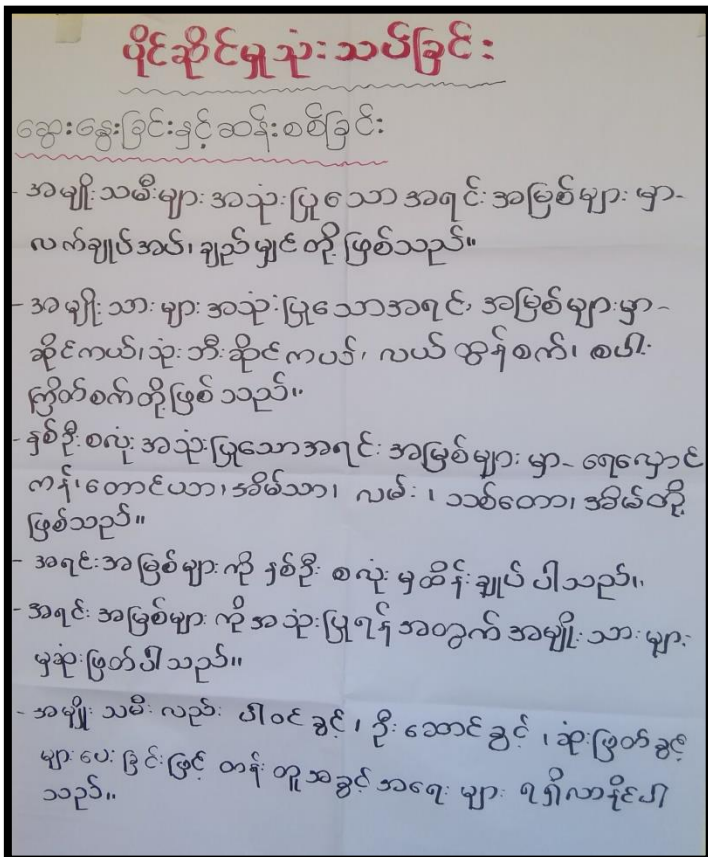 ပိုင်ဆိုင်မှုသုံးသပ်ခြင်း
ဆွေးနွေးခြင်းနှင့်ဆန်းစစ်ခြင်း
- အမျိုးသမီးများအသုံးပြုသောအရင်းအမြစ်များမှာ-
လက်ချုပ်အပ်၊ ချည်မျှင်တို့ဖြစ်သည်။
- အမျိုးသားများအသုံးပြုသောအရင်း အမြစ်များမှာ-
ဆိုင်ကယ်၊ သုံးဘီးဆိုင်ကယ်၊ လယ်ထွန်စက်၊ စပါး
ကြိတ်စက်တို့ဖြစ်သည်။
- နှစ်ဦးစလုံးအသုံးပြုသောအရင်းအမြစ်များမှာ- ရေလှောင်
ကန်၊ တောင်ယာ၊ အိမ်သာ၊ လမ်း၊ သစ်တော၊ အိမ်တို့
ဖြစ်သည်။
- အရင်းအမြစ်များကို နှစ်ဦးစလုံးမှထိန်းချုပ်ပါသည်။
- အရင်းအမြစ်များကိုအသုံးပြုရန်အတွက်အမျိုးသားများ
မှဆုံးဖြတ်ပါသည်။
- အမျိုးသမီးလည်း ပါဝင်ခွင့်၊ ဦးဆောင်ခွင့်၊ ဆုံးဖြတ်ခွင့်
များပေးခြင်းဖြင့် တန်းတူအခွင့်အရေးများ ရရှိလာနိုင်ပါ
သည်။